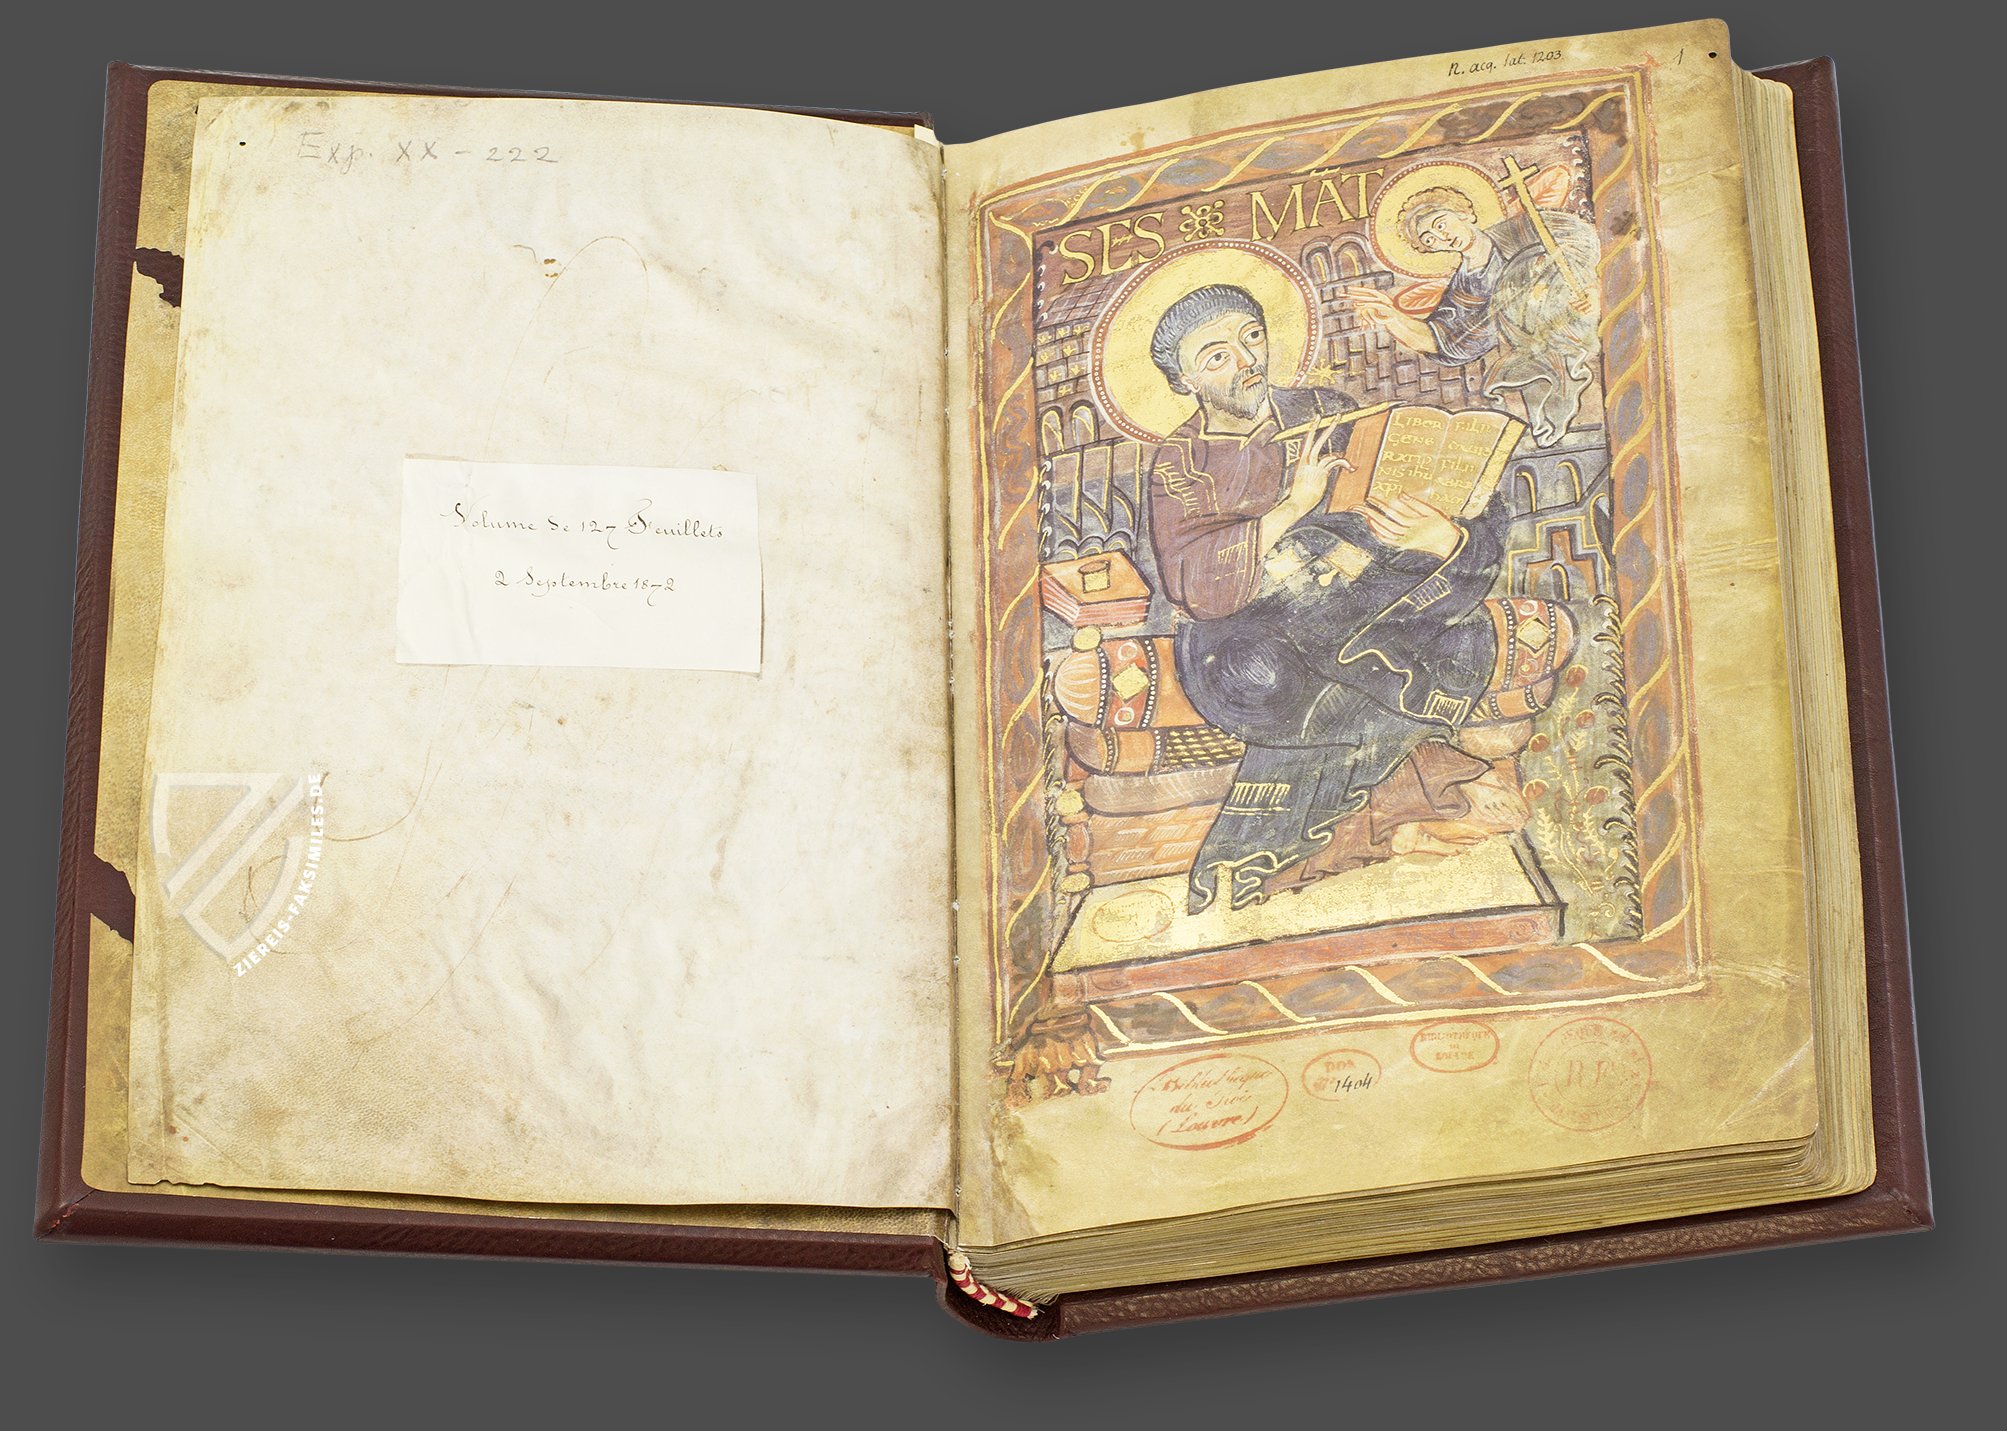 Exp. XX - 222
Volume de 127 Feuillets
2 Septembre 1872
ZIEREIS-FAKSIMILES.DE
N. acq. lat. 1203
1
SES MAT
LIBER
GENE
RATIO
NIS IHU
XPI
FILII
FILII
Bibliothèque
du Roi
(Louvre)
1404
BIBLIOTHEQUE